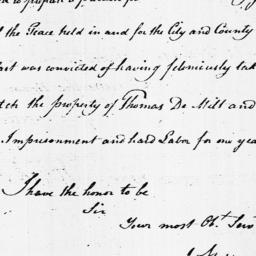 to prepare a
the Peace held in and for the City and County
last was convicted of having feloniously tak
tch the property of Thomas De Mill and
Imprisonment and hard Labor for one yea
I have the honor to be
Sir
Your most Obt. Serv